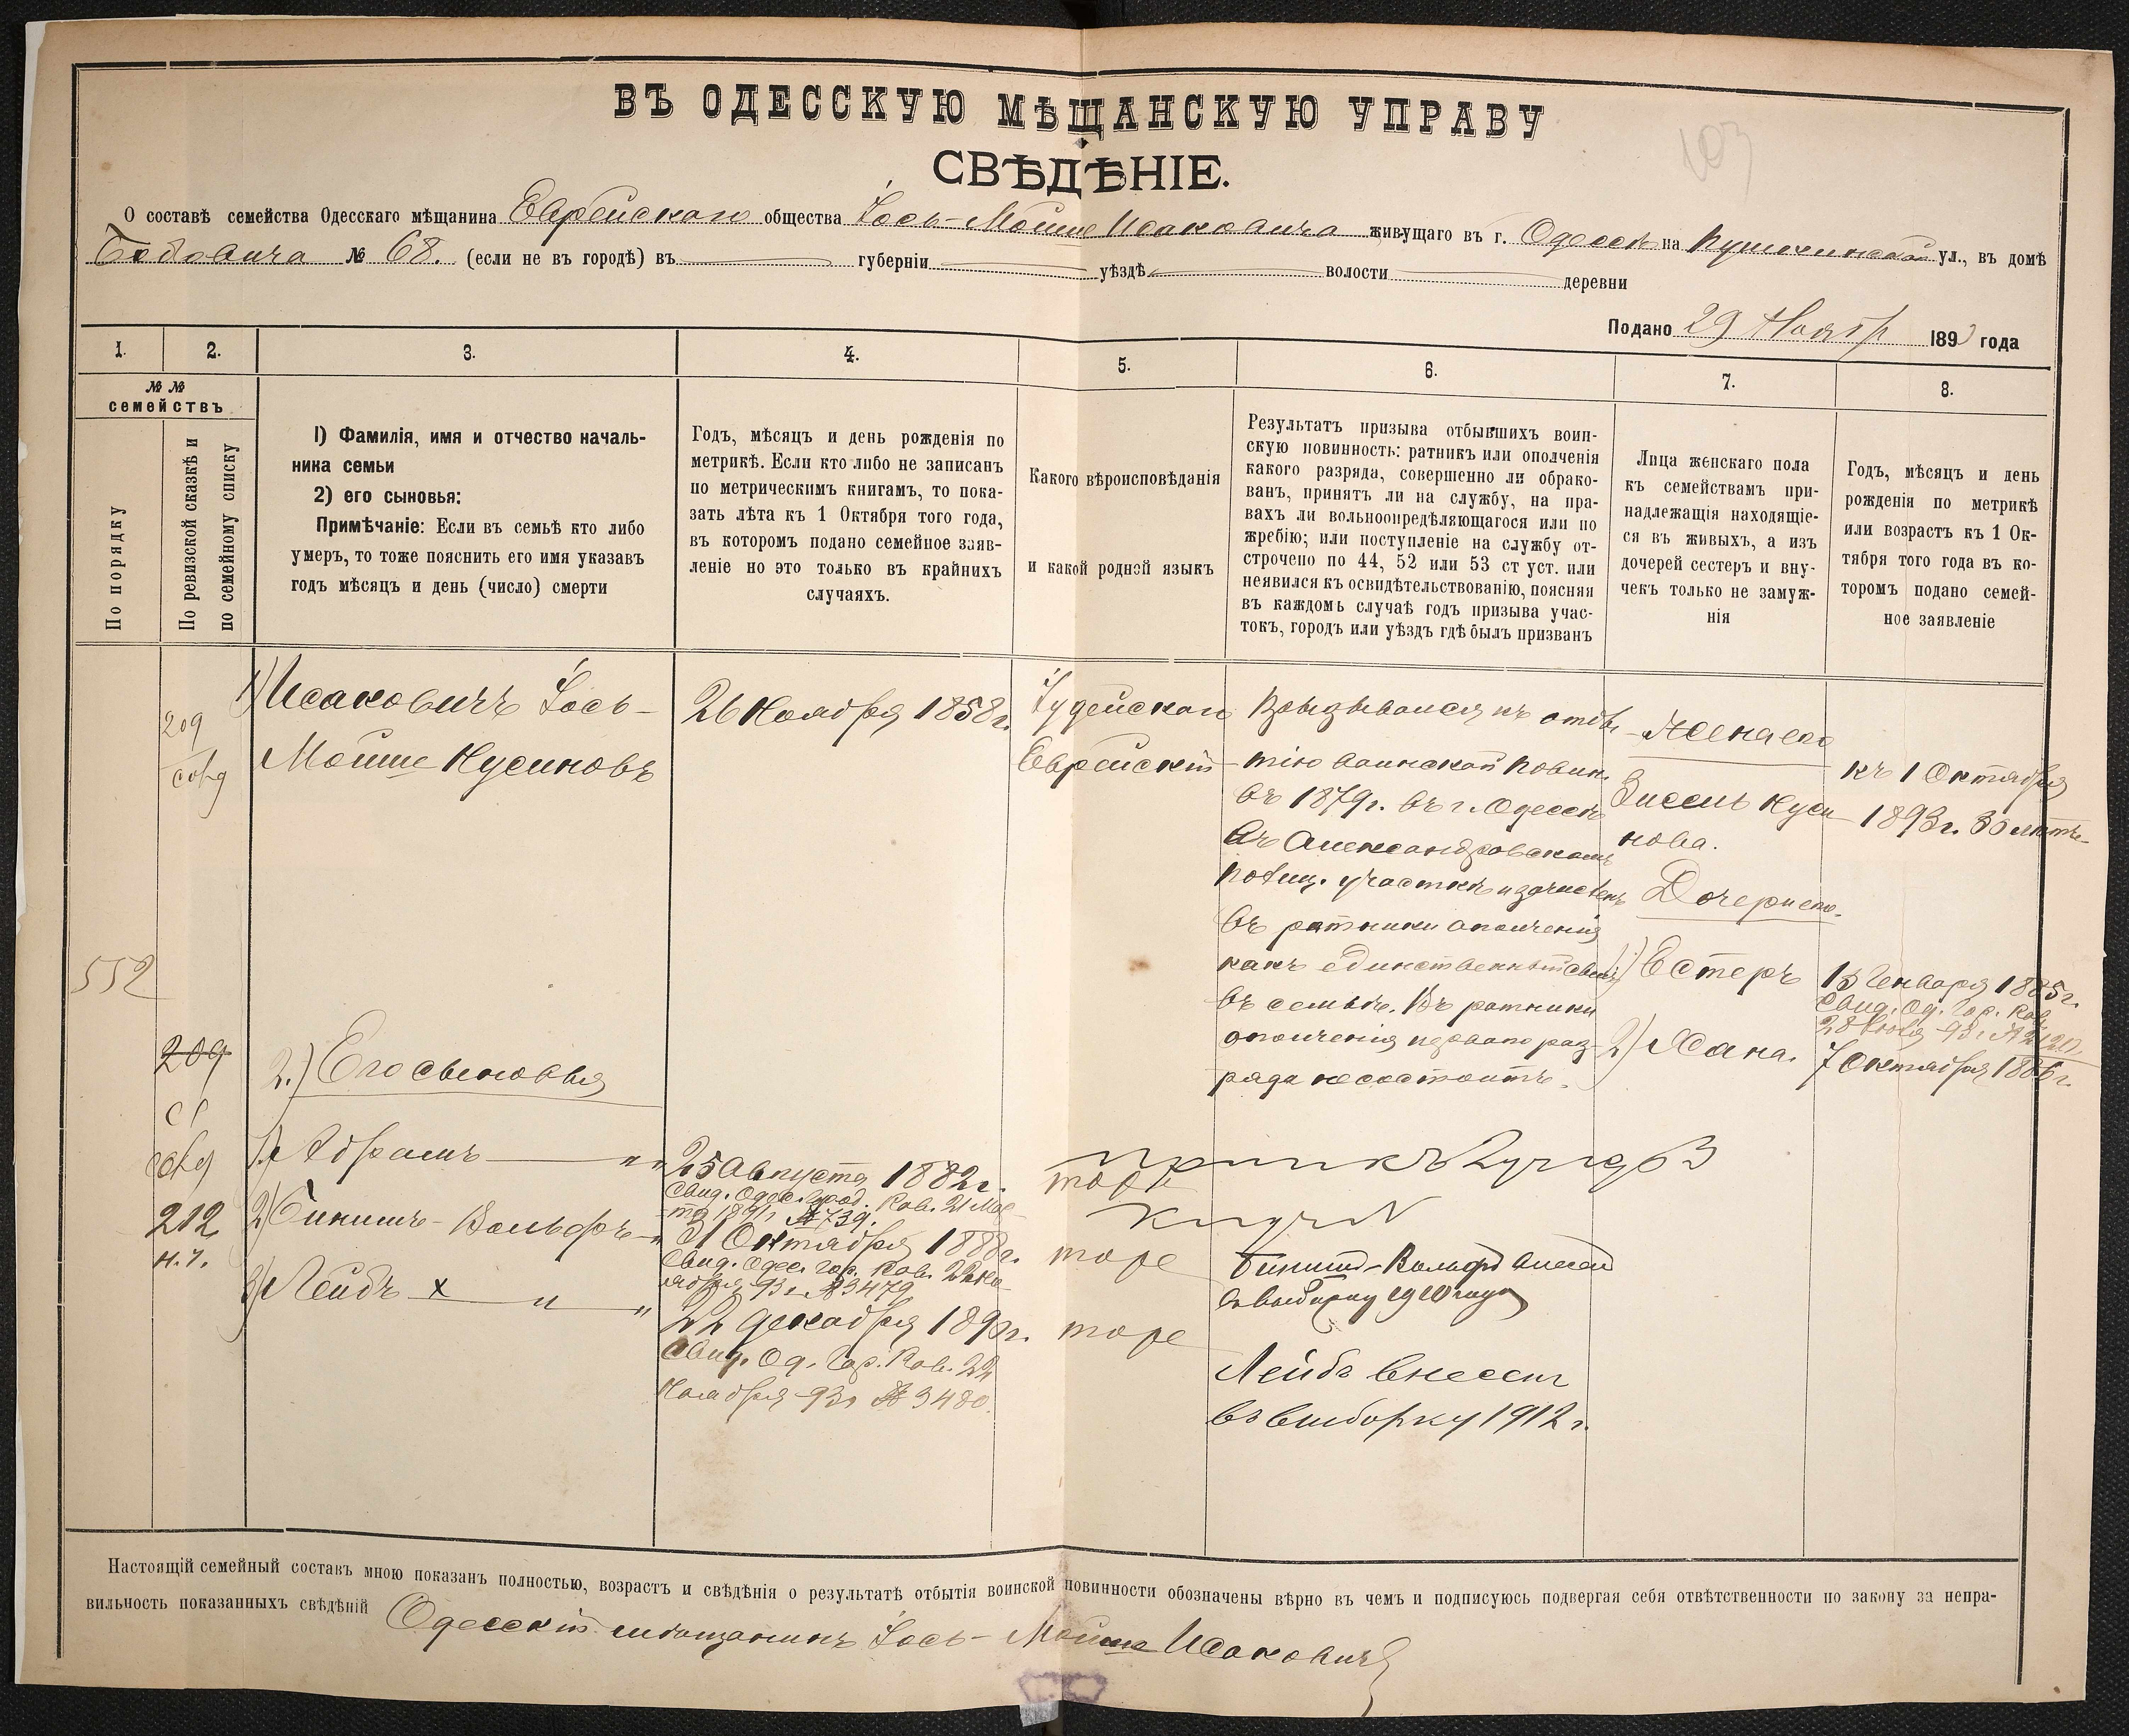 103
ВЪ ОДЕССКУЮ МѢЩАНСКУЮ УПРАВУ
СВѢДѢНІЕ.
О составѣ семейства Одесскаго мѣщанина Еврейскаго общества Іось-Мойше Исаковича живущаго въ г. Одессѣ на Пушкинской ул., въ домѣ
Бобовича № 68. (если не въ городѣ) въ губерніи уѣздѣ волости деревни
Подано 29 Ноября 1893 года
1.
2.
3.
4.
5.
6.
7.
8.
№ №
семействъ
По порядку
По ревизской сказкѣ и
по семейному списку
1) Фамилія, имя и отчество началь-
ника семьи
2) его сыновья:
Примѣчаніе: Если въ семьѣ кто либо
умеръ, то тоже пояснить его имя указавъ
годъ мѣсяцъ и день (число) смерти
Годъ, мѣсяцъ и день рожденія по
метрикѣ. Если кто либо не записанъ
по метрическимъ книгамъ, то пока-
зать лѣта къ 1 Октября того года,
въ которомъ подано семейное заяв-
леніе но это только въ крайнихъ
случаяхъ.
Какого вѣроисповѣданія
и какой родной языкъ
Результатъ призыва отбывшихъ воин-
скую повинность: ратникъ или ополченія
какого разряда, совершенно ли обрако-
ванъ, принятъ ли на службу, на пра-
вахъ ли вольноопредѣляющагося или по
жребію; или поступленіе на службу от-
строчено по 44, 52 или 53 ст уст. или
неявился къ освидѣтельствованію, поясняя
въ каждомъ случаѣ годъ призыва учас-
токъ, городъ или уѣздъ гдѣ былъ призванъ
Лица женскаго пола
къ семействамъ при-
надлежащія находящіе-
ся въ живыхъ, а изъ
дочерей сестеръ и вну-
чекъ только не замуж-
нія
Годъ, мѣсяцъ и день
рожденія по метрикѣ
или возрастъ къ 1 Ок-
тября того года въ ко-
торомъ подано семей-
ное заявленіе
552
209
209
212
н. ч.
1) Исаковичъ Іось-
Мойше Нусиновъ
2.) Его сыновья
1) Абрамъ "
2) Бинимъ-Вольфъ "
3) Лейбъ х " "
26 Ноября 1858 г.
25 Августа 1882 г.
Свид. Одес. Город. Рав. 21 Мар-
та 1891 г. № 739.
21 Октября 1888 г.
Свид. Одес. Гор. Рав. 22 Но-
ября 93 г. № 3479
22 Декабря 1890 г.
Свид. Од. Гор. Рав. 22
Ноября 93 г. № 3480.
Іудейскаго
Еврейскій
тоже
тоже
тоже
Призывался къ отбы-
тію воинской повин.
въ 1879 г. въ г. Одессѣ
въ Александровскомъ
полиц. участкѣ и зачисленъ
въ ратники ополченія
какъ единственный сынъ
въ семьѣ. Въ ратники
ополченія перваго раз-
ряда не состоитъ.
Бинимъ-Вольфъ внесен
в выборку 1910 года
Лейбъ внесенъ
въ выборку 1912 г.
Жена его
Зисель Нуси-
нова.
Дочери его
1) Естеръ
2) Хана.
къ 1 Октября
1893 г. 30 лѣтъ
15 Генваря 1885 г.
Свид. Од. Гор. Рав.
7 Октября 1886 г.
Настоящій семейный составъ мною показанъ полностью, возрастъ и свѣдѣнія о результатѣ отбытія воинской повинности обозначены вѣрно въ чемъ и подписуюсь подвергая себя отвѣтственности по закону за непра-
вильность показанныхъ свѣдѣній Одесскій мѣщанинъ Іось-Мойше Исаковичъ